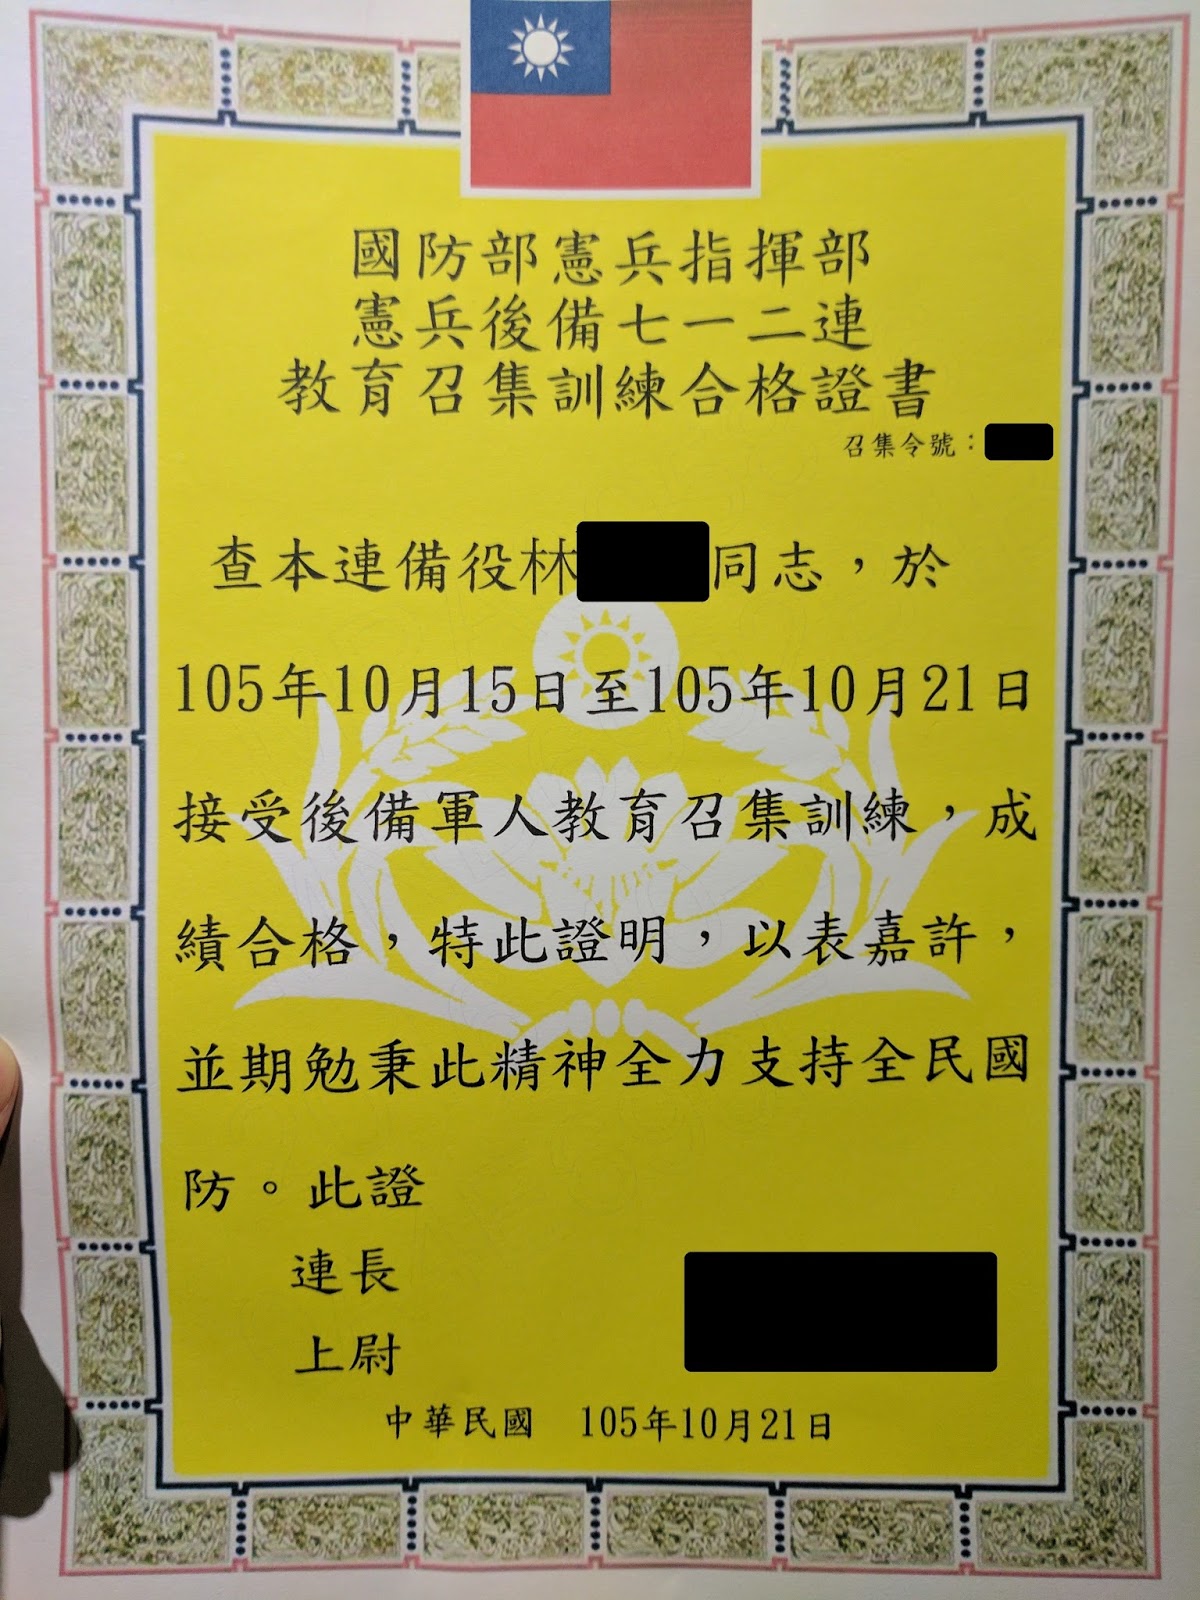 國防部憲兵指揮部
憲兵後備七一二連
教育召集訓練合格證書
召集令號：
查本連備役林 同志，於
105年10月15日至105年10月21日
接受後備軍人教育召集訓練，成
績合格，特此證明，以表嘉許，
並期勉秉此精神全力支持全民國
防。此證
連長
上尉
中華民國 105年10月21日